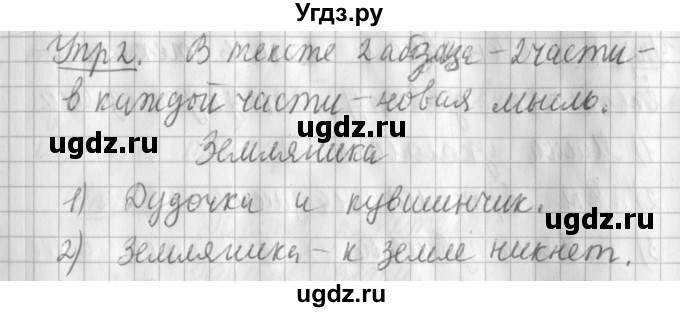 Угдз.ру
Упр 2. В тексте 2 абзаца - 2 части -
в каждой части - новая мысль.
ugdz.ru ugdz.ru
Земляника
1) Дудочка и кувшинчик.
ugdz.ru
2) Земляника - к земле никнет.
ugdz.ru
ugdz.ru